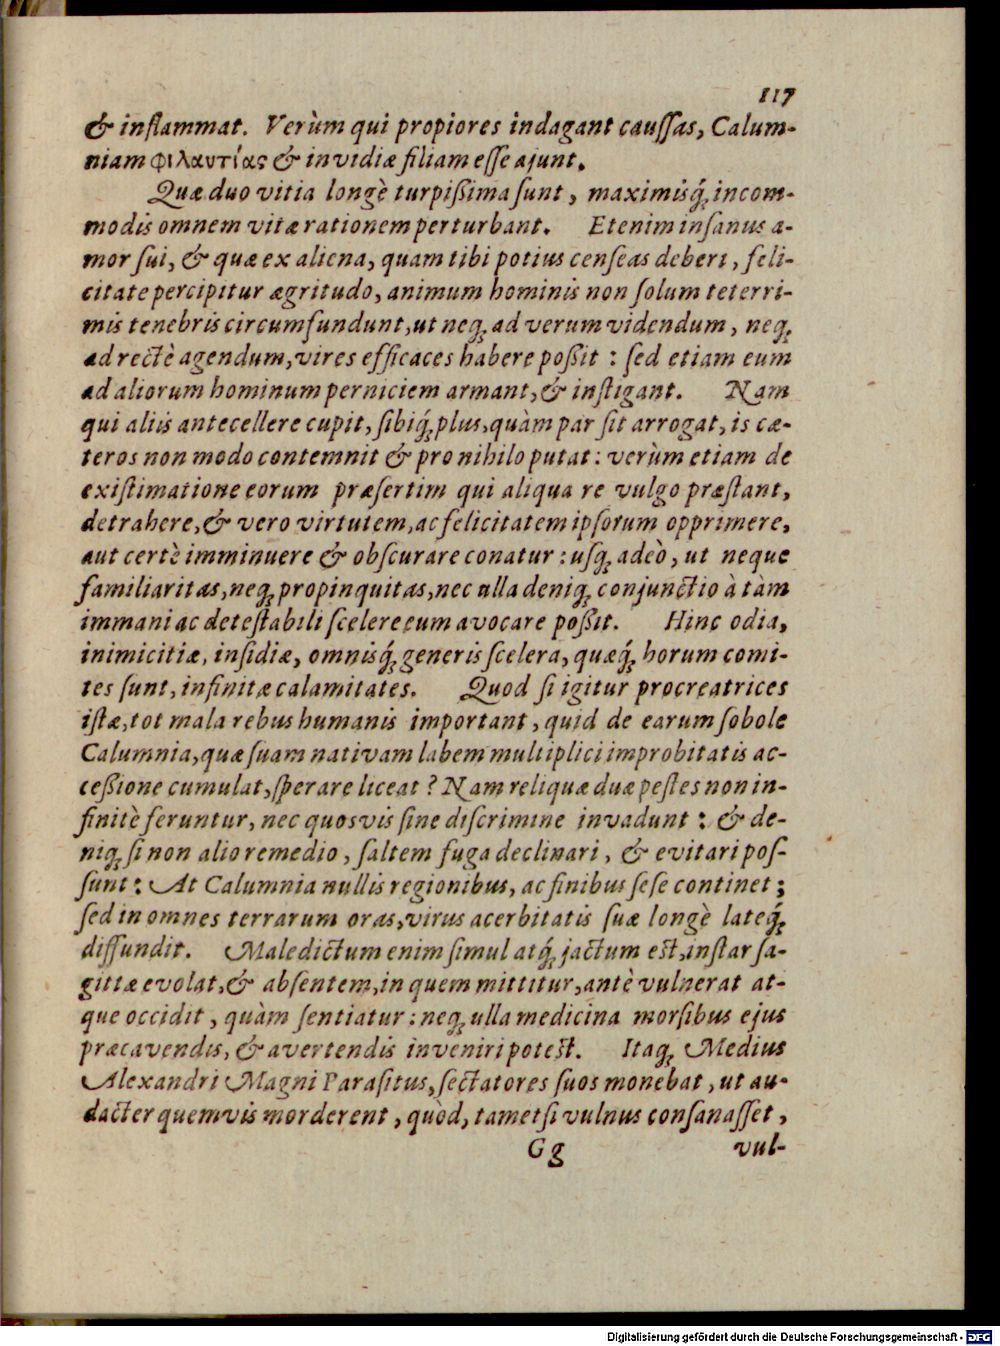 117
& inflammat. Verùm qui propiores indagant cauſſas, Calum-
niam φιλαυτίας & invidiæ filiam eſſe ajunt.
Quæ duo vitia longè turpißima ſunt, maximisq́; incom-
modis omnem vitæ rationem perturbant. Etenim inſanus a-
mor ſui, & quæ ex aliena, quam tibi potius cenſeas deberi, feli-
citate percipitur ægritudo, animum hominis non ſolum teterri-
mis tenebris circumfundunt, ut neq; ad verum videndum, neq;
ad rectè agendum, vires efficaces habere poßit : ſed etiam eum
ad aliorum hominum perniciem armant, & inſtigant. Nam
qui aliis antecellere cupit, ſibiq́; plus, quàm par ſit arrogat, is cæ-
teros non modo contemnit & pro nihilo putat : verùm etiam de
exiſtimatione eorum præſertim qui aliqua re vulgo præſtant,
detrahere, & vero virtutem, ac felicitatem ipſorum opprimere,
aut certè imminuere & obſcurare conatur : uſq; adeò, ut neque
familiaritas, neq; propinquitas, nec ulla deniq; conjunctio à tàm
immani ac deteſtabili ſcelere eum avocare poßit. Hinc odia,
inimicitiæ, inſidiæ, omnisq́; generis ſcelera, quæq́; horum comi-
tes ſunt, infinitæ calamitates. Quod ſi igitur procreatrices
iſtæ, tot mala rebus humanis important, quid de earum ſobole
Calumnia, quæ ſuam nativam labem multiplici improbitatis ac-
ceßione cumulat, ſperare liceat ? Nam reliquæ duæ peſtes non in-
finitè feruntur, nec quosvis ſine diſcrimine invadunt : & de-
niq; ſi non alio remedio, ſaltem fuga declinari, & evitari poſ-
ſunt : At Calumnia nullis regionibus, ac finibus ſeſe continet ;
ſed in omnes terrarum oras, virus acerbitatis ſuæ longè lateq́;
diffundit. Maledictum enim ſimul atq́; jactum eſt, inſtar ſa-
gittæ evolat, & abſentem, in quem mittitur, antè vulnerat at-
que occidit, quàm ſentiatur : neq; ulla medicina morſibus ejus
præcavendis, & avertendis inveniri poteſt. Itaq; Medius
Alexandri Magni Paraſitus, ſectatores ſuos monebat, ut au-
dacter quemvis morderent, quòd, tametſi vulnus conſanaſſet,
Gg vul-
Digitalisierung gefördert durch die Deutsche Forschungsgemeinschaft - DFG